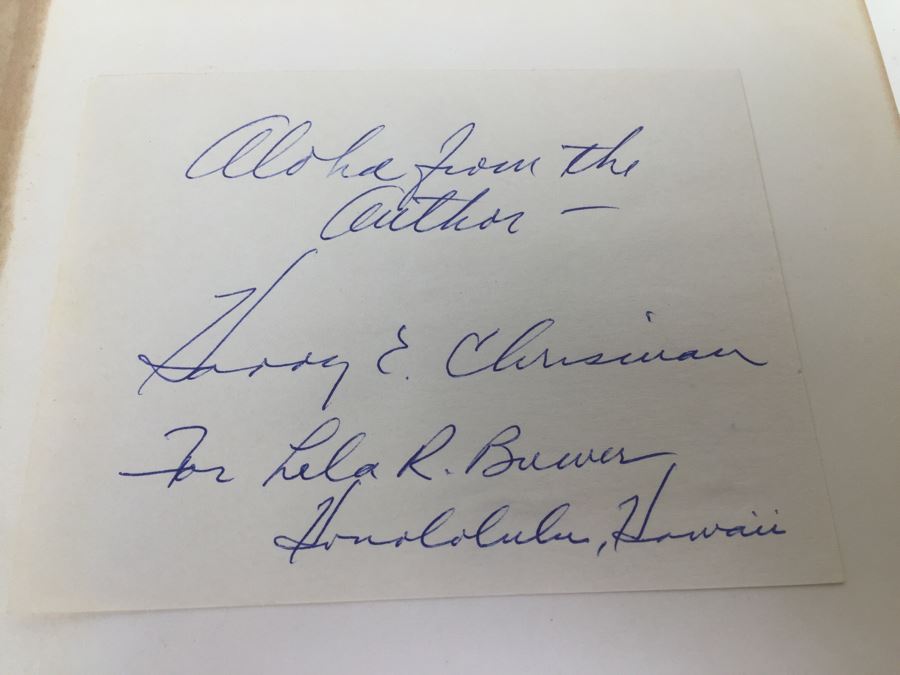 Aloha from the
Author —
Harry E. Chrisman
For Lela R. Brewer
Honololulu, Hawaii